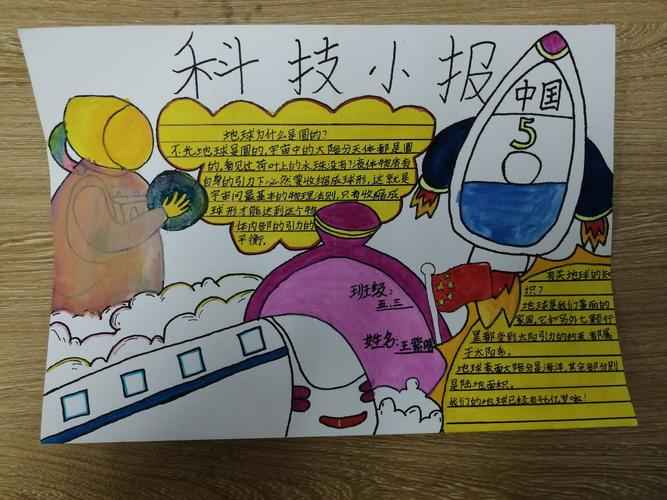 科技小报
中国
5
地球为什么是圆的?
不光地球是圆的,宇宙中的大部分天体都是圆
的,看见过荷叶上的水球没有?液体物质在
自身的引力下必然要收缩成球形,这就是
宇宙间最基本的物理法则,只有收缩成
球形才能达到这个物
体内部的引力的
平衡.
班级:
五.三
姓名:王
有关地球的知
识?
地球是我们美丽的
家园,它和另外七颗行
星都受到太阳引力的约束,都属
于太阳系.
地球表面大部分是海洋,其余部分则
是陆地面积.
我们的地球已经有46亿岁啦!